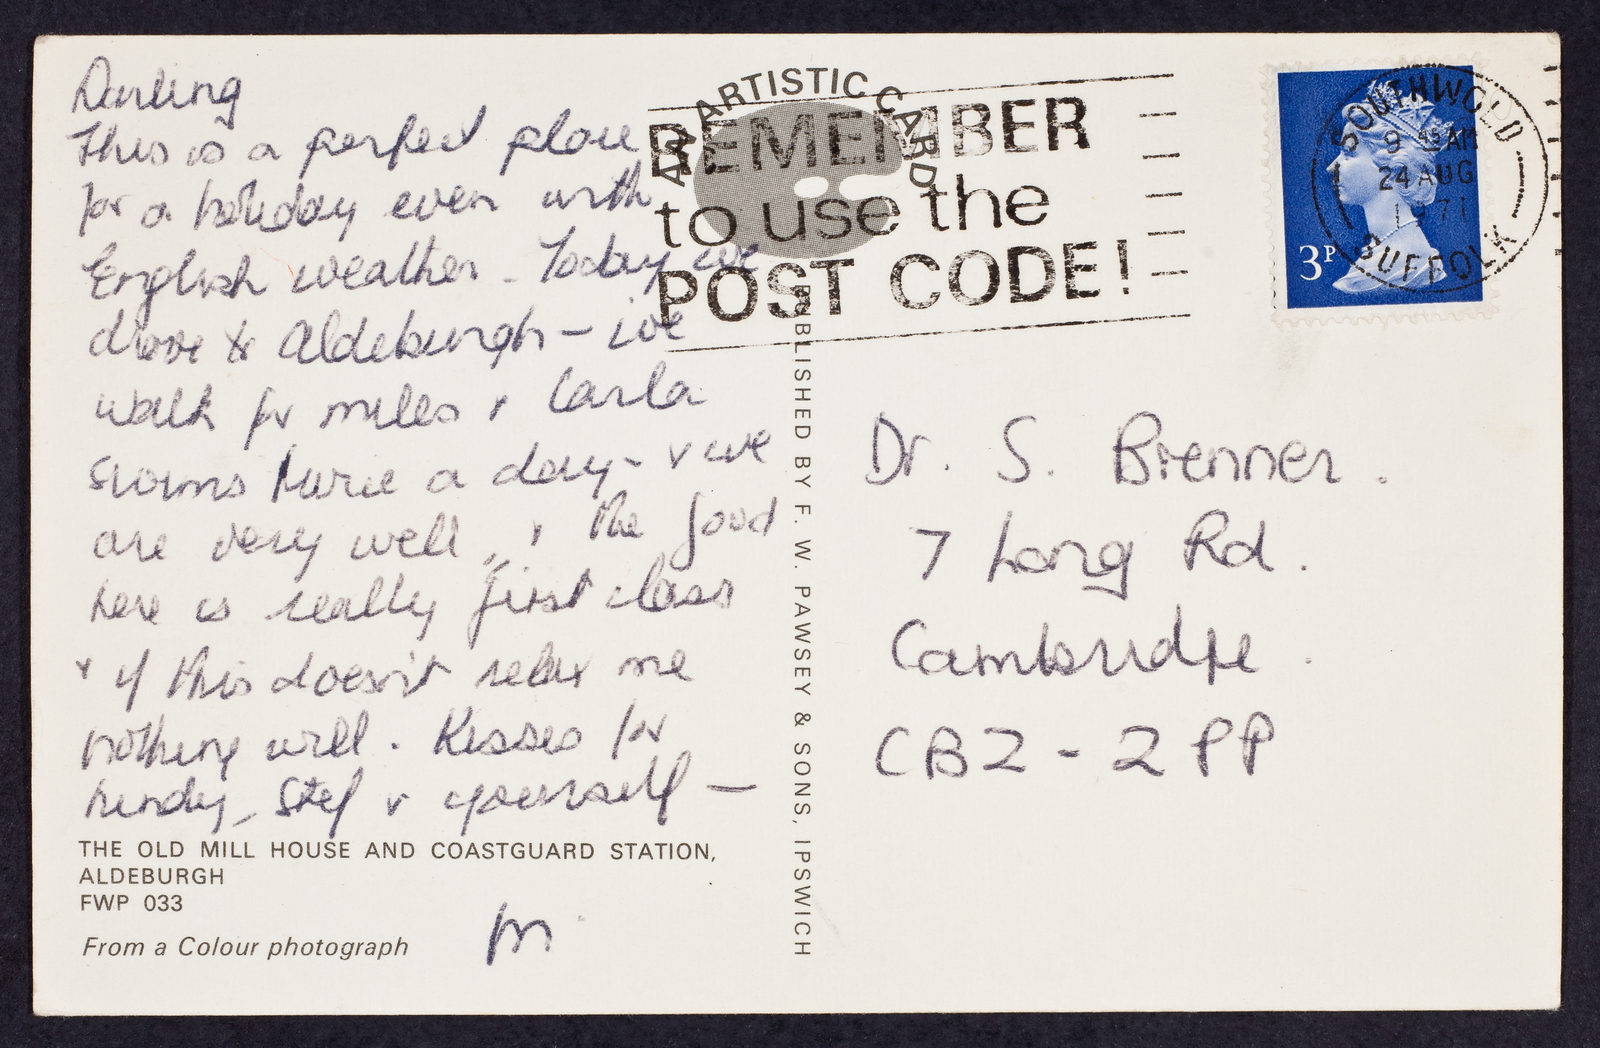 Darling
This is a perfect place
for a holiday even with
English weather - Today we
drove to Aldeburgh - we
walk for miles + Carla
swims twice a day - + we
are very well, + the food
here is really first class
+ if this doesn't relax me
nothing will. Kisses for
Stef + yourself -
m
THE OLD MILL HOUSE AND COASTGUARD STATION,
ALDEBURGH
FWP 033
From a Colour photograph
AN ARTISTIC CARD
PUBLISHED BY F. W. PAWSEY & SONS, IPSWICH
REMEMBER
to use the
POST CODE!
3P
SOUTHWOLD
9 45 AM
24 AUG
1971
SUFFOLK
Dr. S. Brenner.
7 Long Rd.
Cambridge.
CB2 - 2PP